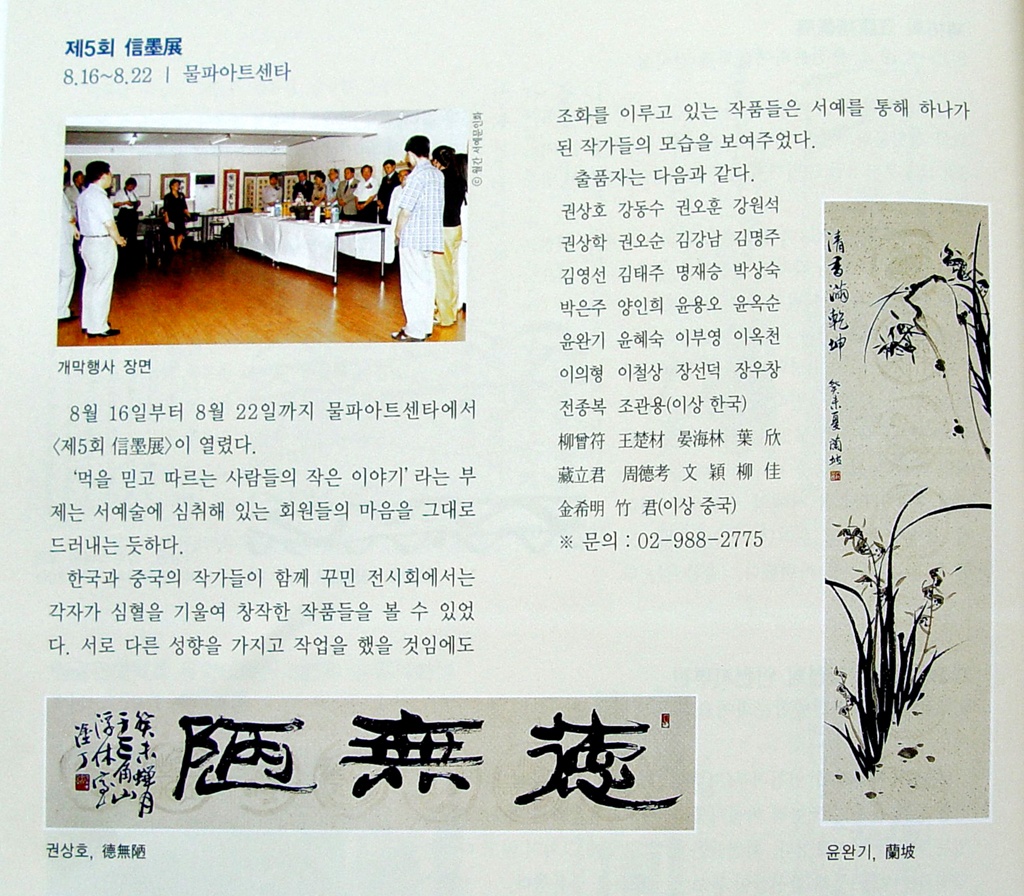 제5회 信墨展
8.16~8.22 | 물파아트센타
ⓒ 월간 서예문인화
개막행사 장면
8월 16일부터 8월 22일까지 물파아트센타에서
〈제5회 信墨展〉이 열렸다.
‘먹을 믿고 따르는 사람들의 작은 이야기’ 라는 부
제는 서예술에 심취해 있는 회원들의 마음을 그대로
드러내는 듯하다.
한국과 중국의 작가들이 함께 꾸민 전시회에서는
각자가 심혈을 기울여 창작한 작품들을 볼 수 있었
다. 서로 다른 성향을 가지고 작업을 했을 것임에도
조화를 이루고 있는 작품들은 서예를 통해 하나가
된 작가들의 모습을 보여주었다.
출품자는 다음과 같다.
권상호 강동수 권오훈 강원석
권상학 권오순 김강남 김명주
김영선 김태주 명재승 박상숙
박은주 양인희 윤용오 윤옥순
윤완기 윤혜숙 이부영 이옥천
이의형 이철상 장선덕 장우창
전종복 조관용(이상 한국)
柳曾符 王楚材 晏海林 葉 欣
藏立君 周德考 文 穎 柳 佳
金希明 竹 君(이상 중국)
※ 문의 : 02-988-2775
清香滿乾坤 癸未夏 蘭坡
德無陋
癸未蟬月
于三角山
浮休室
塗丁
권상호, 德無陋
윤완기, 蘭坡